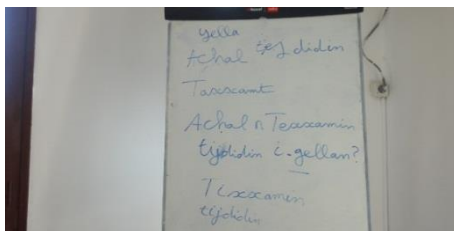 yella
Achal tejdidin
Taxxamt
Achal n Texxamin
tijdidin i-gellan?
Tixxamin
tijdidin